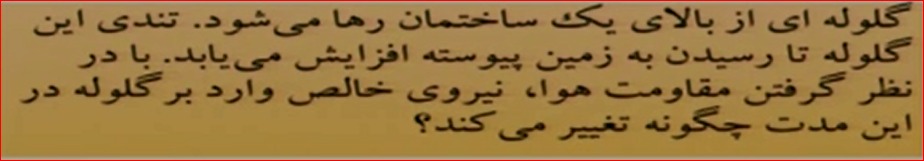 گلوله ای از بالای یک ساختمان رها می‌شود. تندی این
گلوله تا رسیدن به زمین پیوسته افزایش می‌یابد. با در
نظر گرفتن مقاومت هوا، نیروی خالص وارد بر گلوله در
این مدت چگونه تغییر می کند؟